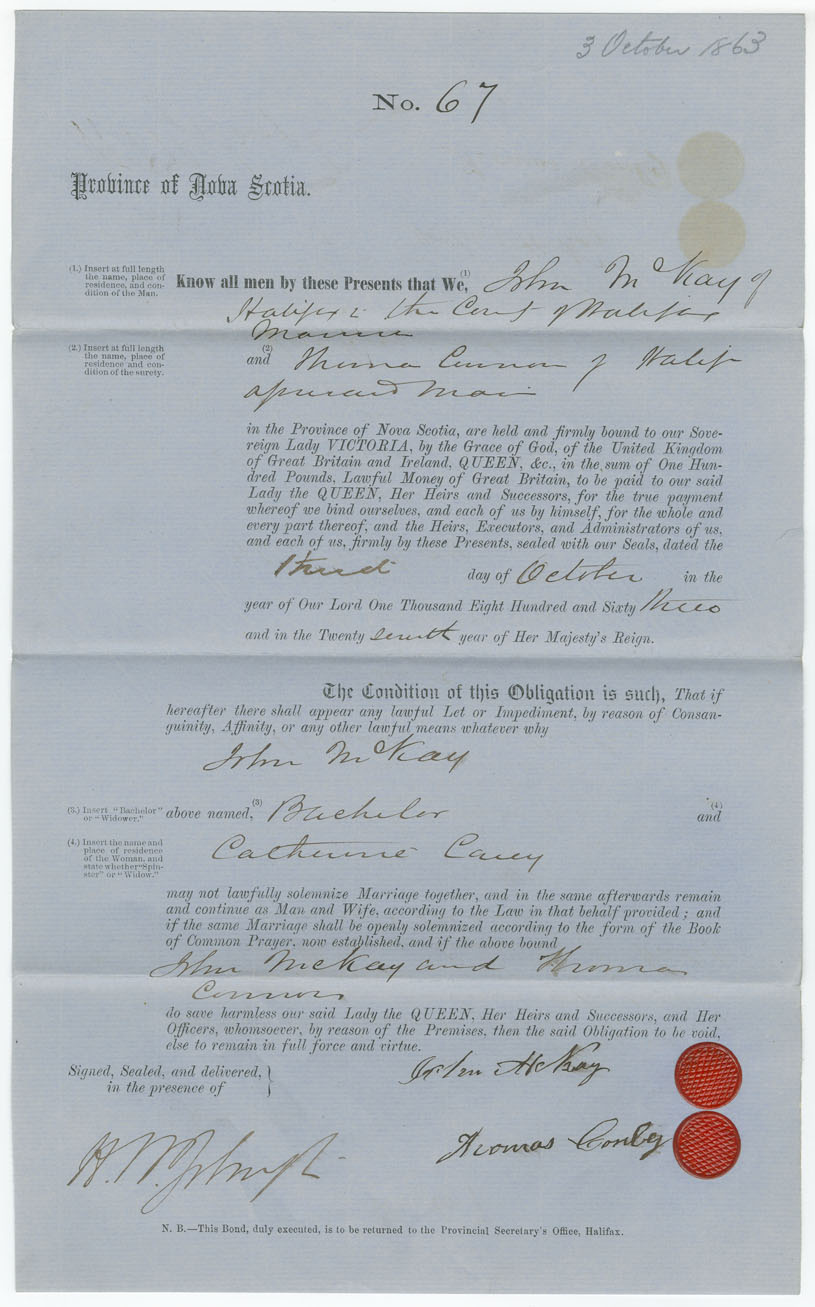 3 October 1863
No. 67
Province of Nova Scotia.
(1.) Insert at full length
the name, place of
residence, and con-
dition of the Man.
Know all men by these Presents that We,(1) John McKay of
Halifax in the County of Halifax
(2.) Insert at full length
the name, place of
residence and con-
dition of the surety.
and (2) Thomas Connors of Halifx
in the Province of Nova Scotia, are held and firmly bound to our Sove-
reign Lady VICTORIA, by the Grace of God, of the United Kingdom
of Great Britain and Ireland, QUEEN, &c., in the sum of One Hun-
dred Pounds, Lawful Money of Great Britain, to be paid to our said
Lady the QUEEN, Her Heirs and Successors, for the true payment
whereof we bind ourselves, and each of us by himself, for the whole and
every part thereof, and the Heirs, Executors, and Administrators of us,
and each of us, firmly by these Presents, sealed with our Seals, dated the
Third day of October in the
year of Our Lord One Thousand Eight Hundred and Sixty three
and in the Twenty seventh year of Her Majesty's Reign.
The Condition of this Obligation is such, That if
hereafter there shall appear any lawful Let or Impediment, by reason of Consan-
guinity, Affinity, or any other lawful means whatever why
John McKay
(3.) Insert "Bachelor"
or "Widower."
above named,(3) Bachelor (4) and
(4.) Insert the name and
place of residence
of the Woman, and
state whether "Spin-
ster" or "Widow."
Catherine Carey
may not lawfully solemnize Marriage together, and in the same afterwards remain
and continue as Man and Wife, according to the Law in that behalf provided; and
if the same Marriage shall be openly solemnized according to the form of the Book
of Common Prayer, now established, and if the above bound
John McKay and Thomas
Connors
do save harmless our said Lady the QUEEN, Her Heirs and Successors, and Her
Officers, whomsoever, by reason of the Premises, then the said Obligation to be void,
else to remain in full force and virtue.
Signed, Sealed, and delivered,
in the presence of
John McKay
Thomas Conley
N. B.—This Bond, duly executed, is to be returned to the Provincial Secretary's Office, Halifax.